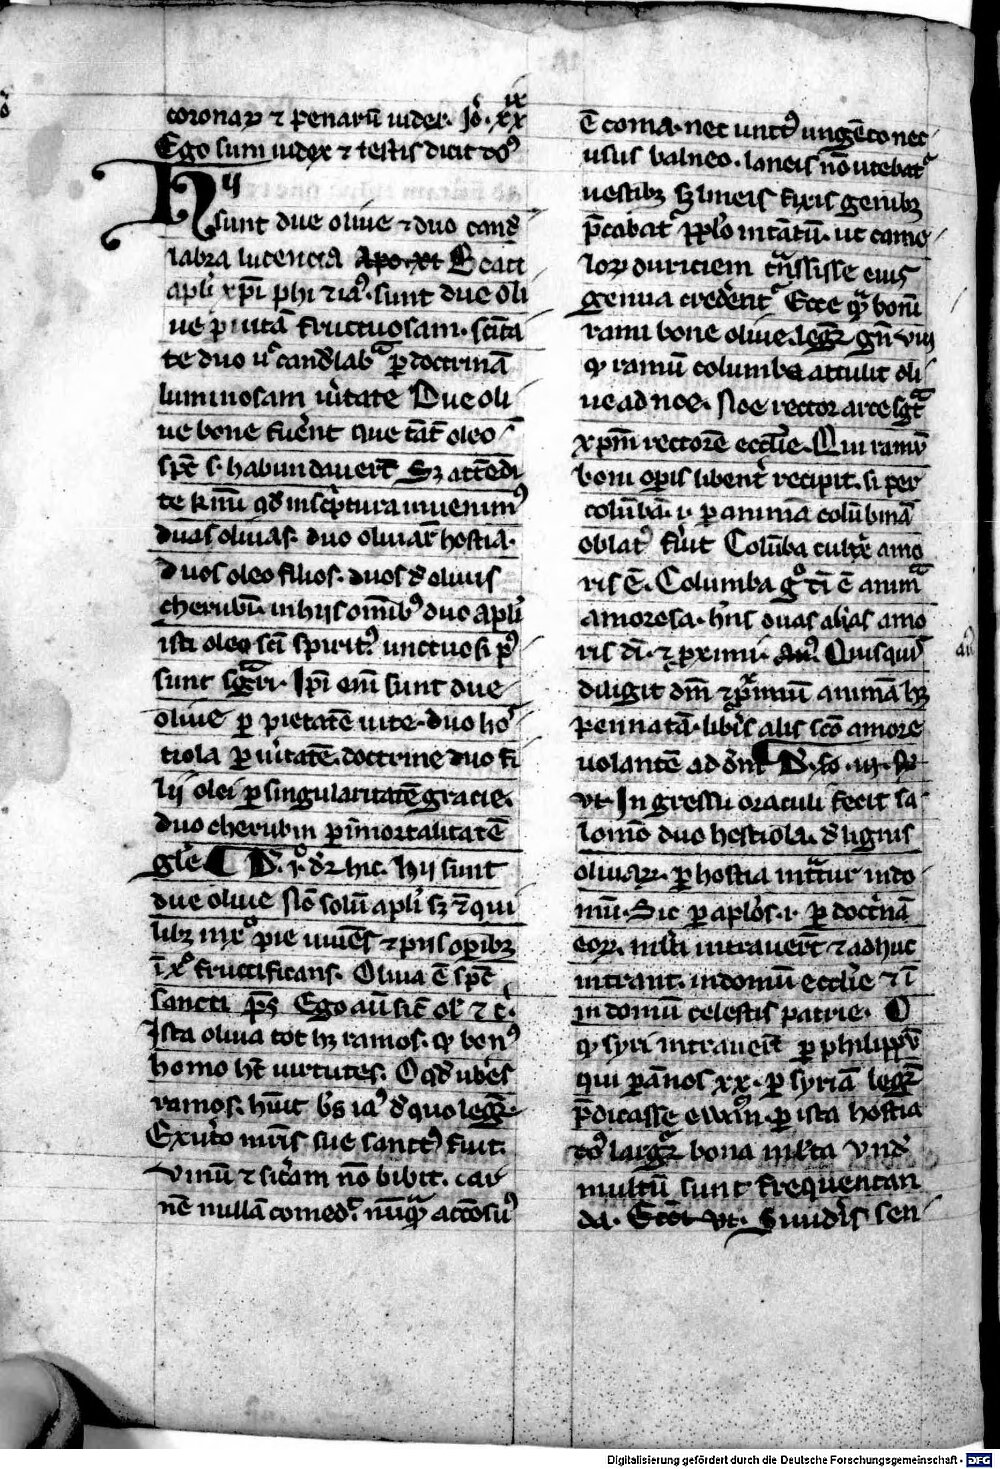 coronaꝝ ⁊ penarū iudex. Jo. xx ix
Ego sum iudex ⁊ testis dicit dn̄s
Hii
sunt due oliue ⁊ duo cand
labra lucencia Apo. xi Beati
apl̓i xp̄i phi ⁊ ia. sunt due oli
ue ꝑ uitā fructuosam. scīta
te duo u° candelab ꝑ doctrinā
luminosam ūitate Due oli
ue bone fuer̄nt que tāt oleo
sp̄c s. habundauer̄t Sꝫ attēdi
te kmi qd in scptura inuenimꝰ
duas oliuas. duo oliuaꝝ hostia.
duos oleo filios. duos d̓ oliuis
cherubī. in hiis om̄ibꝰ duo apl̓i
isti oleo scī spirit unctuosi pꝰ
sunt sgāri. Ip̄i em̄ sunt due
oliue ꝑ pietatē uite. duo hos
tiola ꝑ ūitatē doctrine duo fi
lii olei ꝑ singularitatē gracie.
duo cherubin ꝑ īmortalitatē
gl̓e ¶ D. i° dr̄ hic. hii sunt
due oliue Nō solū apl̓i sꝫ ⁊ qui
libꝫ in xº pie uiuēs ⁊ piis opibꝫ
ī xº fructificans. Oliua ē sp̄c
sancti p̄s Ego aū sic̄ ol̓ ⁊ c̄.
Ista oliua tot hꝫ ramos. ꝙ bonꝰ
homo ht̄ uirtutes. O qd ub̓es
ramos. huīt bs ia d̓ quo legr̄.
Ex ut̓o mr̄is sue sanctꝰ fuit.
vinū ⁊ sic̓am nō bibit. car
nē nullā comed. nūꝗ attōsuꝰ
ē coma. nec unctꝰ ungēto nec
usus balneo. laneis nō utebat
uestibꝫ sꝫ lineis fixis genibꝫ
p̄cabat ꝓ pp̓lo in tātū. ut came
loꝝ duriciem trāssisse eius
genua creder̄ent Ecce ꝙ boni
rami bone oliue. legr̄ gn̄ viii
ꝙ ramū columba attulit oli
ue ad noe. Noe rector arce sgt
xp̄m rectorē ecclīe. Qui ramū
boni op̄is libent̓ recipit. si per
colūbā. i. ꝑ animā colūbinā
oblatꝰ fuīt Colūba cultrix amo
ris ē. Columba g° dī ē anima
amorosa. hn̄s duas alias amo
ris dī. ⁊ ꝓximi. Au. Quisquis
diligit dm̄ ⁊ ꝓimū animā hꝫ
pennatā. lib̓is alis scō amore
uolantē ad dn̄m D. so. iii.
vt In gressu oraculi fecit sa
lomō duo hostiola. d̓ lignis
oliuaꝝ. ꝑ hostia intratur in do
mū. Sic ꝑ apl̓os. i. ꝑ doctrinā
eoꝝ. multi intrauer̄t ⁊ adhuc
intrant. in domū ecclīe ⁊ ī
in domū celestis patrie. O
ꝙ syri intrauer̄t ꝑ philippū
qui ꝑ ānos xx. ꝑ syriā legr̄
p̄dicasse ewān. ꝑ ista hostia
dꝰ largr̄ bona multa vnd̓
multū sunt frequentan
da. vt. Suuder̄is sen
Digitalisierung gefördert durch die Deutsche Forschungsgemeinschaft - DFG